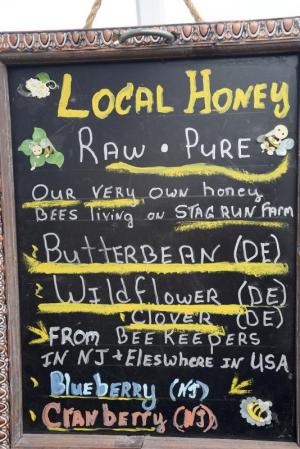 LOCAL HONEY
RAW • PURE
OUR VERY OWN honey
BEES living on STAG RUN FARM
BUTTERBEAN (DE)
WildFlower (DE)
CloVER (DE)
FROM BEE KEEPERS
IN NJ + ElESWHERE IN USA
Blueberry (NJ)
CranberrY (NJ)